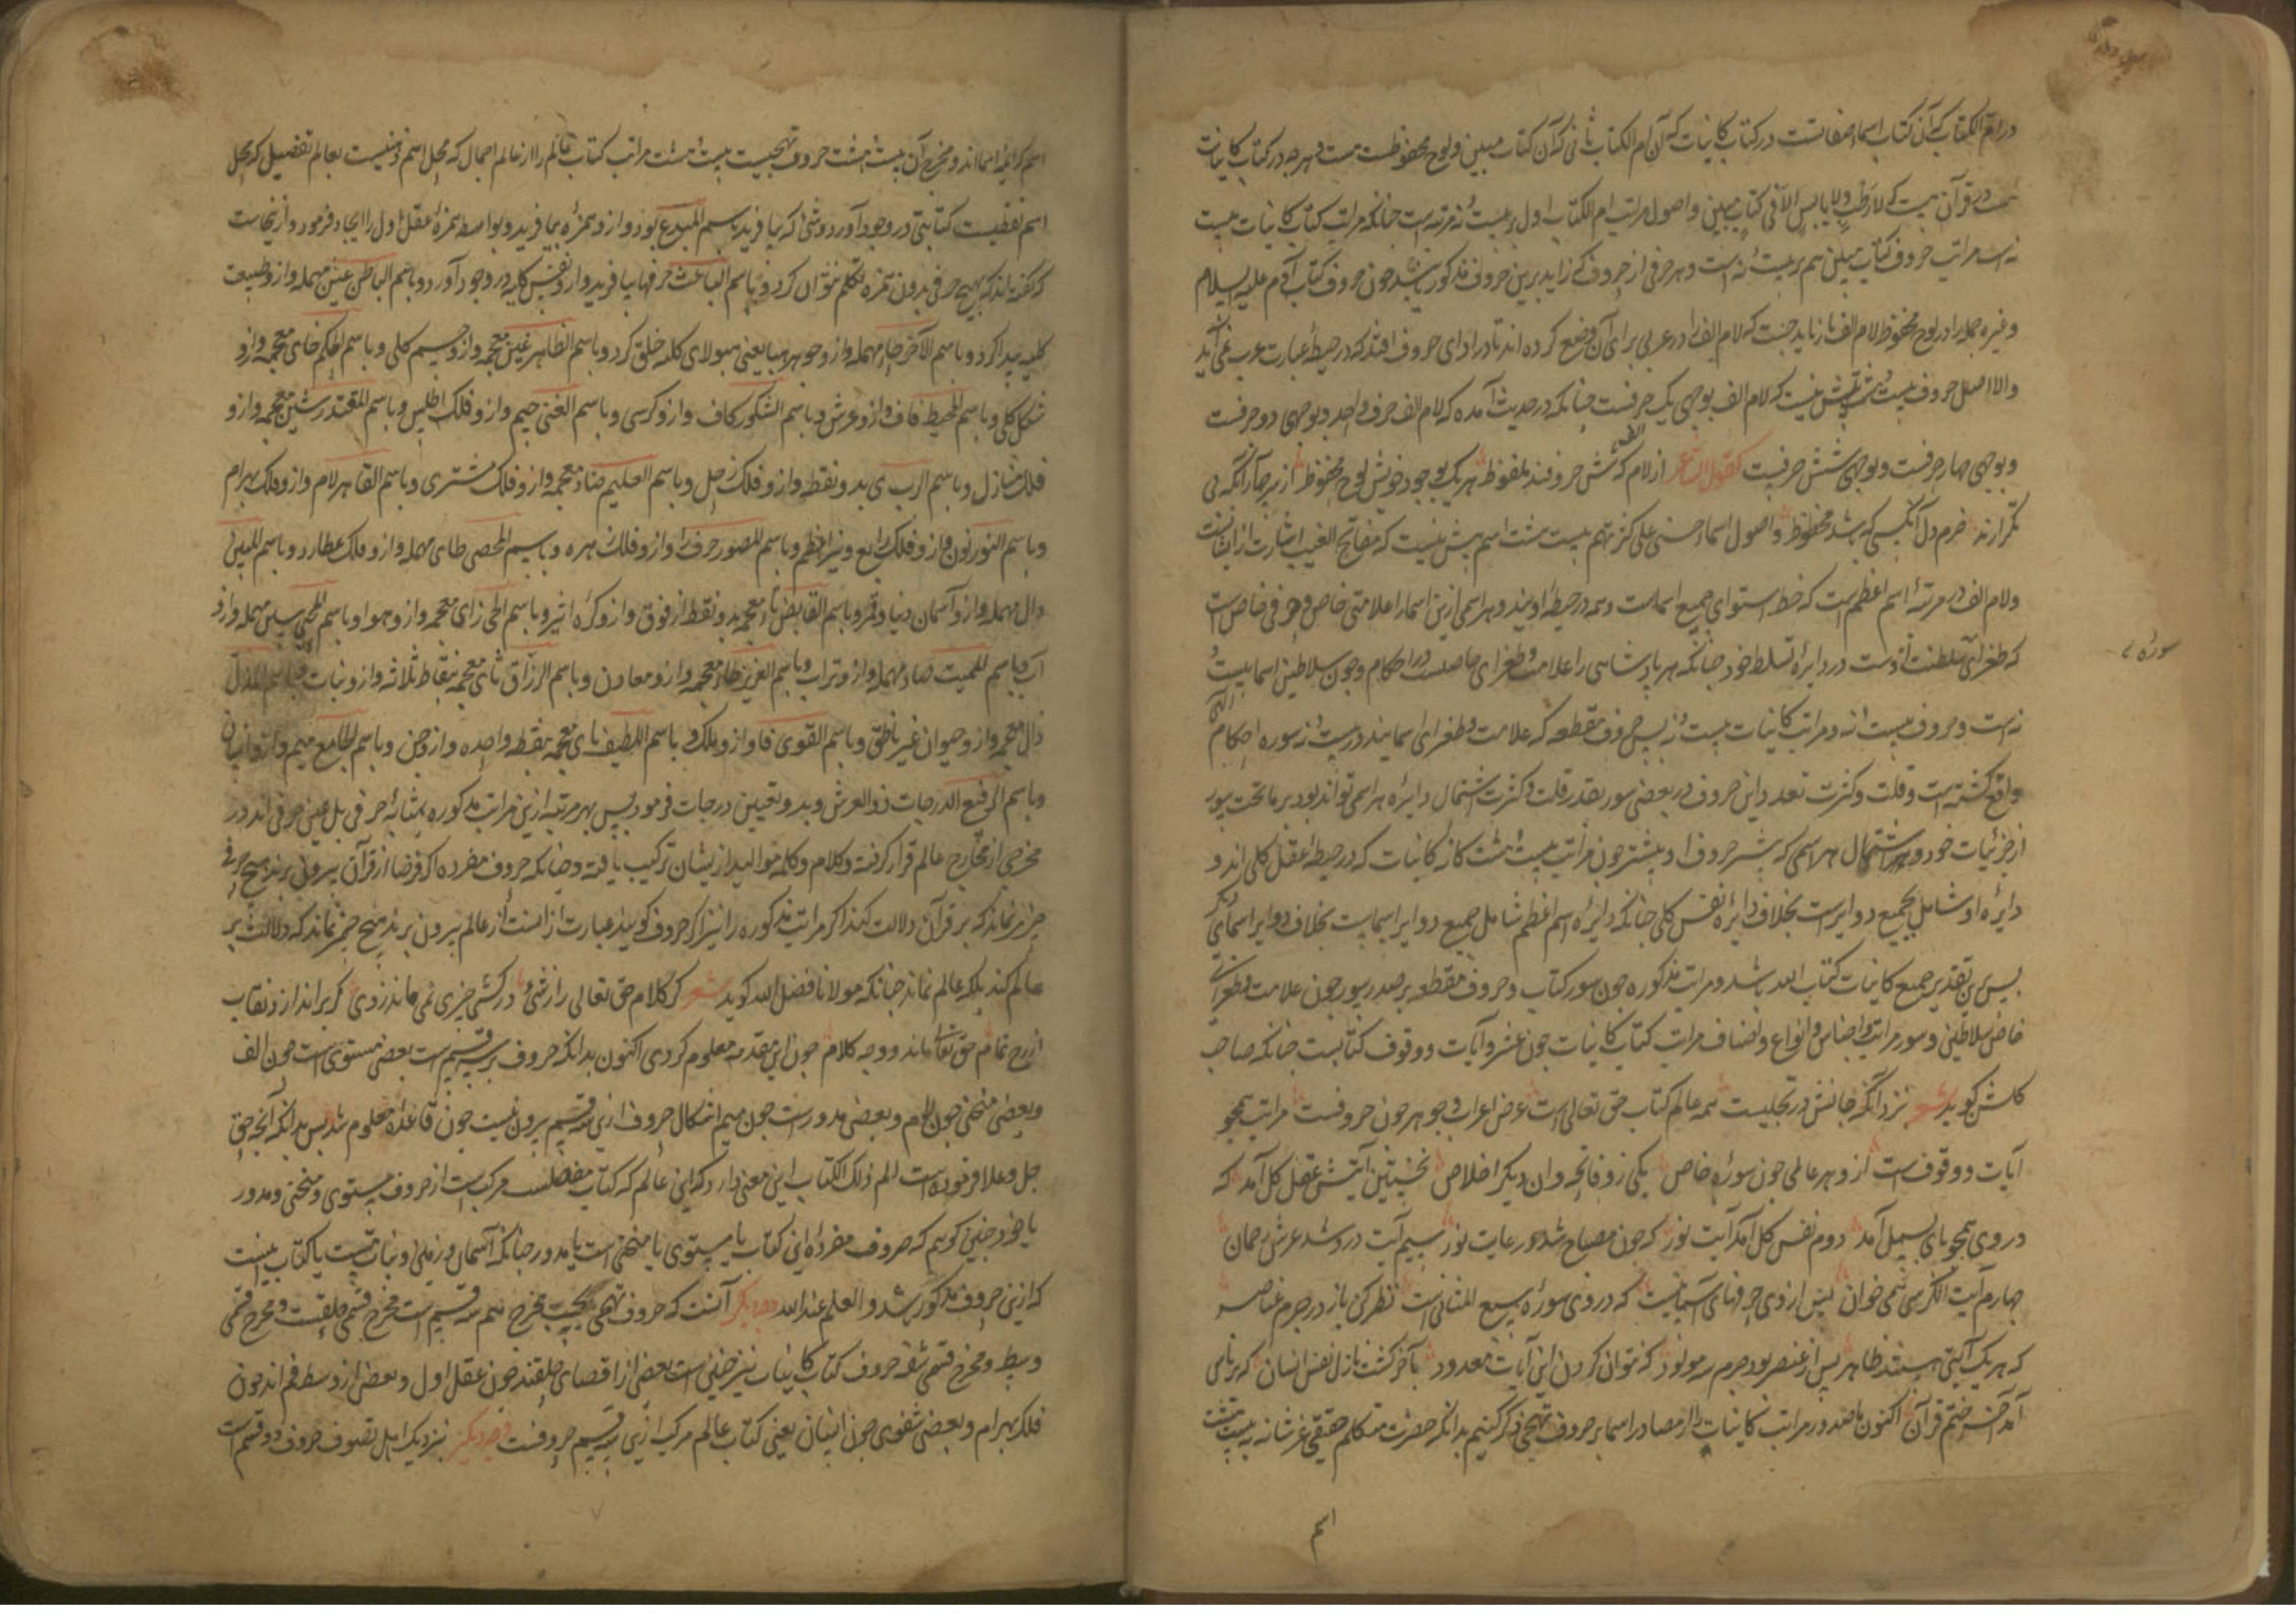 در ام الکتاب که آن کتاب اسما و صفاتست در کتاب کاینات که آن ام الکتاب ثانی که آن کتاب مبین و لوح محفوظست هست و هرچه در کتاب کاینات
هست در قرآن هست که لا رطب ولا یابس الا فی کتاب مبین و اصول مراتب ام الکتاب اول بیست و نه مرتبه است چنانکه مراتب کتاب کاینات بیست
نه است مراتب حروف کتاب مبین هم بر بیست و نه است و هر حرفی از حروف که زاید برین حروف مذکور باشد چون حروف کتاب آدم علیه السلام
و غیره جمله را در لوح محفوظ لام الف باز نماید جهت که لام الف را در عربی برای آن وضع کرده اند تا در ادای حروف افتد که در حیطه عبارت عرب نمی آید
والا اصل حروف بیست هشت بیش نیست که لام الف بوجهی یک حرفست چنانکه در حدیث آمده که لام الف حرف واحد و بوجهی دو حرفست
و بوجهی چهار حرفست و بوجهی شش حرفست کقول الشاعر از لام الف که شش حروفند ملفوظ هر یک بوجود خویش لوح محفوظ از هر چه آن نگه بی
تکرارند خرم دل آنکسی که باشد محظوظ و اصول اسماء حسنی علی کثرتهم بیست هشت اسم بیش نیست که مفاتح الغیب اشارت از ایشانست
و لام الف در مرتبه اسم اعظم است که خط استوای جمیع اسماست و همه در حیطه اویند و هر اسمی ازین اسما را علامتی خاص و حرفی خاص است
که طغرای سلطنت اوست در دایره تسلط خود چنانکه هر پادشاهی را علامت و طغرای خاصست در احکام و چون سلاطین اسما بیست و
نه است و حروف بیست و نه و مراتب کاینات بیست و نه پس حروف مقطعه که علامت و طغرای اسمایند در بیست و نه سوره احکام الهی
واقع گشته است و قلت و کثرت تعدد این حروف در بعضی سور بقدر قلت و کثرت اشتمال دایره هر اسمی تواند بود بر ماتحت سور
از جزئیات خود و اشتمال هر اسمی که بیشتر حروف او بیشتر چون مراتب بیست و هشت کانه کاینات که در حیطه عقل کلی اند و
دایره او شامل بجمیع دوایرست بخلاف دایره نفس کلی چنانکه دایره اسم اعظم شامل جمیع دوایر اسماست بخلاف دوایر اسمای دیگر
پس برین تقدیر جمیع کاینات کتاب الله باشد و مراتب مذکوره چون سور کتاب و حروف مقطعه بر صدر سور چون علامت و طغرای
خاص سلاطین و سور مراتب و اجناس و انواع و اصناف مراتب کتاب کاینات چون عشر و آیات و وقوف کتابست چنانکه صاحب
کلشن کوید شعر نزد آنکه جانش در تجلیست همه عالم کتاب حق تعالی است عرض اعراب و جوهر چون حروفست مراتب همچو
آیات و وقوفست ازو هر عالمی چون سوره خاص یکی زو فاتحه وان دیکر اخلاص نخستین آیتش عقل کل آمد که
در وی همچو بای بسمل آمد دوم نفس کل آمد آیت نور که چون مصباح شد در غایت نور سیم آیت درو شد عرش رحمان
چهارم آیت الکرسی همی خوان پس از وی جرمهای آسمانیست که در وی سوره سبع المثانی است نظر کن باز در جرم عناصر
که هر یک آیتی هستند ظاهر پس از عنصر بود جرم سه مولود که نتوان کردن این آیات معدود بآخر گشت نازل نفس انسان که بر ناس
آمد آخر ختم قرآن اکنون ما صدور مراتب کاینات را از مصادر اسما بر حروف تهجی ذکر کنیم بدانکه حضرت متکلم حقیقی عز شانه به بیست هشت
اسم
سوره
اسم که ایمه اسما اند و مخرج آن بیست هشت حروف تهجیست بیست و هشت مراتب کتاب عالم را از عالم اجمال که محل اسم ذهنیست بعالم تفصیل که محل
اسم لفظیست کتابتی در وجود آورد و شئ که بیافرید باسم المبدع بود و ازو همزه بیافرید و بواسطه همزه عقل اول را ایجاد فرمود و از اینجاست
که گفته اند که هیچ حرفی بدون همزه تکلم نتوان کرد و باسم الباعث حرف ها بیافرید و ازو نفس کلیه در وجود آورد و باسم الباطن عین مهمله و ازو طبیعت
کلیه پیدا کرد و باسم الآخر حاء مهمله و ازو جوهر هبا یعنی هیولای کله خلق کرد و باسم الظاهر غین معجمه و ازو جسم کلی و باسم الحکیم خای معجمه و ازو
شکل کلی و باسم المحیط قاف و ازو عرش و باسم الشکور کاف و ازو کرسی و باسم الغنی جیم و ازو فلک اطلس و باسم المقتدر شین معجمه و ازو
فلک منازل و باسم الرب ی بدو نقطه و ازو فلک زحل و باسم العلیم ضاد معجمه و ازو فلک مشتری و باسم القاهر لام و ازو فلک بهرام
و باسم النور نون و ازو فلک رابع و نیر اعظم و باسم المصور حرف را و ازو فلک زهره و باسم المحصی طای مهمله و ازو فلک عطارد و باسم المبین
دال مهمله و ازو آسمان دنیا و قمر و باسم القابض تاء معجمه بدو نقطه از فوق و ازو کره اثیر و باسم الحی زای معجمه و ازو هوا و باسم المحیی سین مهمله و ازو
آب و باسم الممیت صاد مهمله و ازو تراب و باسم العزیز ظاء معجمه و ازو معادن و باسم الرزاق ثای معجمه بنقاط ثلاثه و ازو نبات و باسم المذل
ذال معجمه و ازو حیوان غیر ناطق و باسم القوی فا و ازو ملک و باسم اللطیف بای معجمه بنقطه واحده و ازو جن و باسم الجامع میم و ازو انسان
و باسم الرفیع الدرجات ذو العرش و بدو تعیین درجات فرمود پس هر مرتبه ازین مراتب مذکوره بمثابه حرفی بل عین حرفی اند در
مخرجی از مخارج عالم قرار گرفته و کلام و کلمه موالید از ایشان ترکیب یافته و چنانکه حروف مفرده اگر فرضا از قرآن بیرون برند هیچ حرفی
چیز نماند که بر قرآن دلالت کند اگر مراتب مذکوره را نیز اگر حروف کویند عبارت از آنست از عالم بیرون برند هیچ چیز نماند که دلالت بر
عالم کند بلکه عالم نماند چنانکه مولانا فضل الله کوید شعر گر کلام حق تعالی را ز شئ در کشی چیزی نمی ماند ز وی گر براندازد نقاب
از رخ تمام حق تعالی ماند و وجه کلام چون این مقدمه معلوم کردی اکنون بدانکه حروف بر سه قسم است بعضی مستوی است چون الف
و بعضی منحنی چون لام و بعضی مدورست چون میم اشکال حروف ازین سه قسم بیرون نیست چون قاعده معلوم شد پس بدانکه آنچه حق
جل و علا فرموده است الم ذلک الکتاب این معنی دارد که این عالم که کتاب مفصلست مرکب است از حروف مستوی و منحنی و مدور
یا خود چنین کویم که حروف مفرده این کتاب یا مستوی یا منحنی است یا مدور چنانکه آسمان و زمین و نبات است یا کتاب نیست
که ازین حروف مذکور باشد و العلم عند الله وجه دیکر آنست که حروف تهجی بحسب مخرج هم سه قسم است مخرج قسمی حلقیست و مخرج قسمی
وسط و مخرج قسمی شفه حروف کتاب کاینات نیز چنین است بعضی از اقصای حلقند چون عقل اول و بعضی از وسط فم اند چون
فلک بهرام و بعضی شفوی چون انسان یعنی کتاب عالم مرکب ازین سه قسم حروفست وجه دیکر نزدیک اهل تصوف حروف دو قسم است